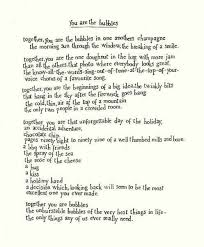 You are the bubbles
together, you are the bubbles in one anothers champagne
the morning sun through the window, the breaking of a smile.
together, you are the one doughnut in the bag with more jam
than all the others, the photo where everybody looks great,
the know-all-the-words-sing-out-of-tune-at-the-top-of-your-
voice chorus of a favourite song.
together, you are the beginnings of a big idea, the twinkly bits
that hang in the sky after the firework goes bang
the cold, thin, air at the top of a mountain
the only two people in a crowded room.
together, you are that unforgettable day of the holiday,
an accidental adventure,
chocolate chip,
pages ninety eight to ninety nine of a well thumbed
a bbq with friends
spray of the sea
the scoc of the cheese
a hug
a kiss
a holding hand
a decision which, looking back will soon to be the most
excellent one you ever made.
together you are bubbles
the unburstable bubbles of the very best things in life-
the only things any of us ever really need.